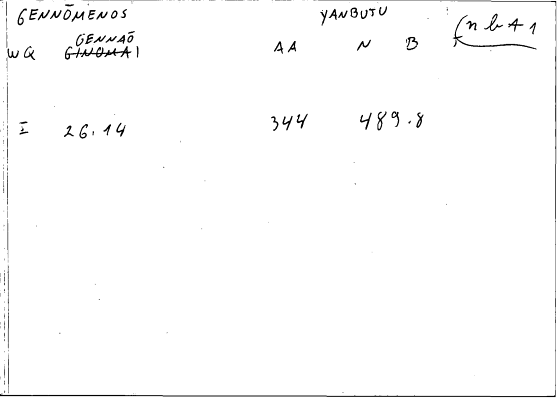 GENNŌMENOS YANBUTU (n b A 1
GENNAŌ
WQ GINOMAI AA N B
I 26.14 344 489.8